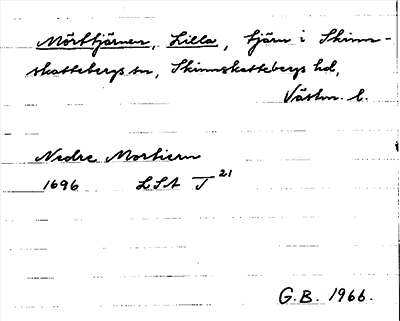 Mörttjärnen, Lilla, tjärn i Skinn-
skattebergs sn, Skinnskattebergs hd,
Västm. l.
Nedre Mortiern
1696 LSA T 21
G.B. 1966.